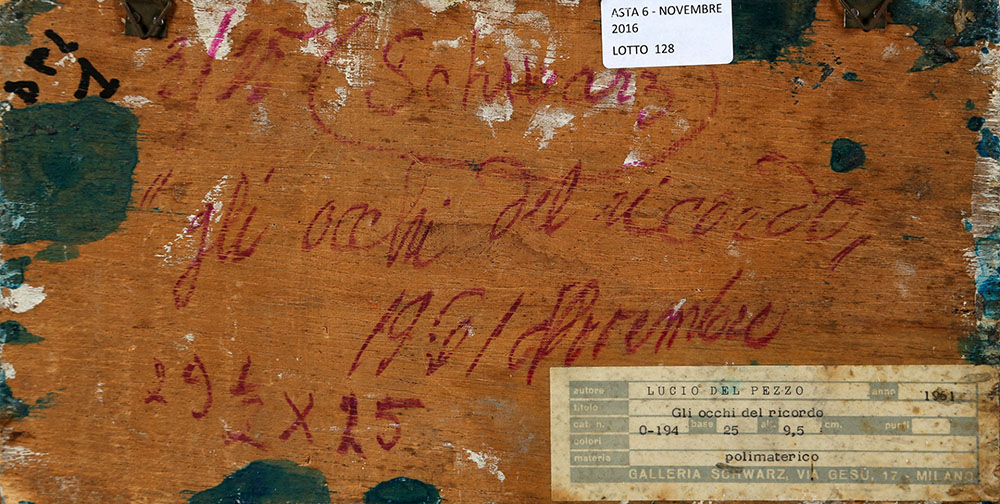 ASTA 6 - NOVEMBRE
2016
LOTTO 128
Schwarz
"gli occhi del ricordo"
1961
29 ½ x 25
autore LUCIO DEL PEZZO anno 1961
titolo Gli occhi del ricordo
cat. n. 0-194 base 25 alt. 9,5 cm. punti
colori
materia polimaterico
GALLERIA SCHWARZ, VIA GESÙ, 17 - MILANO